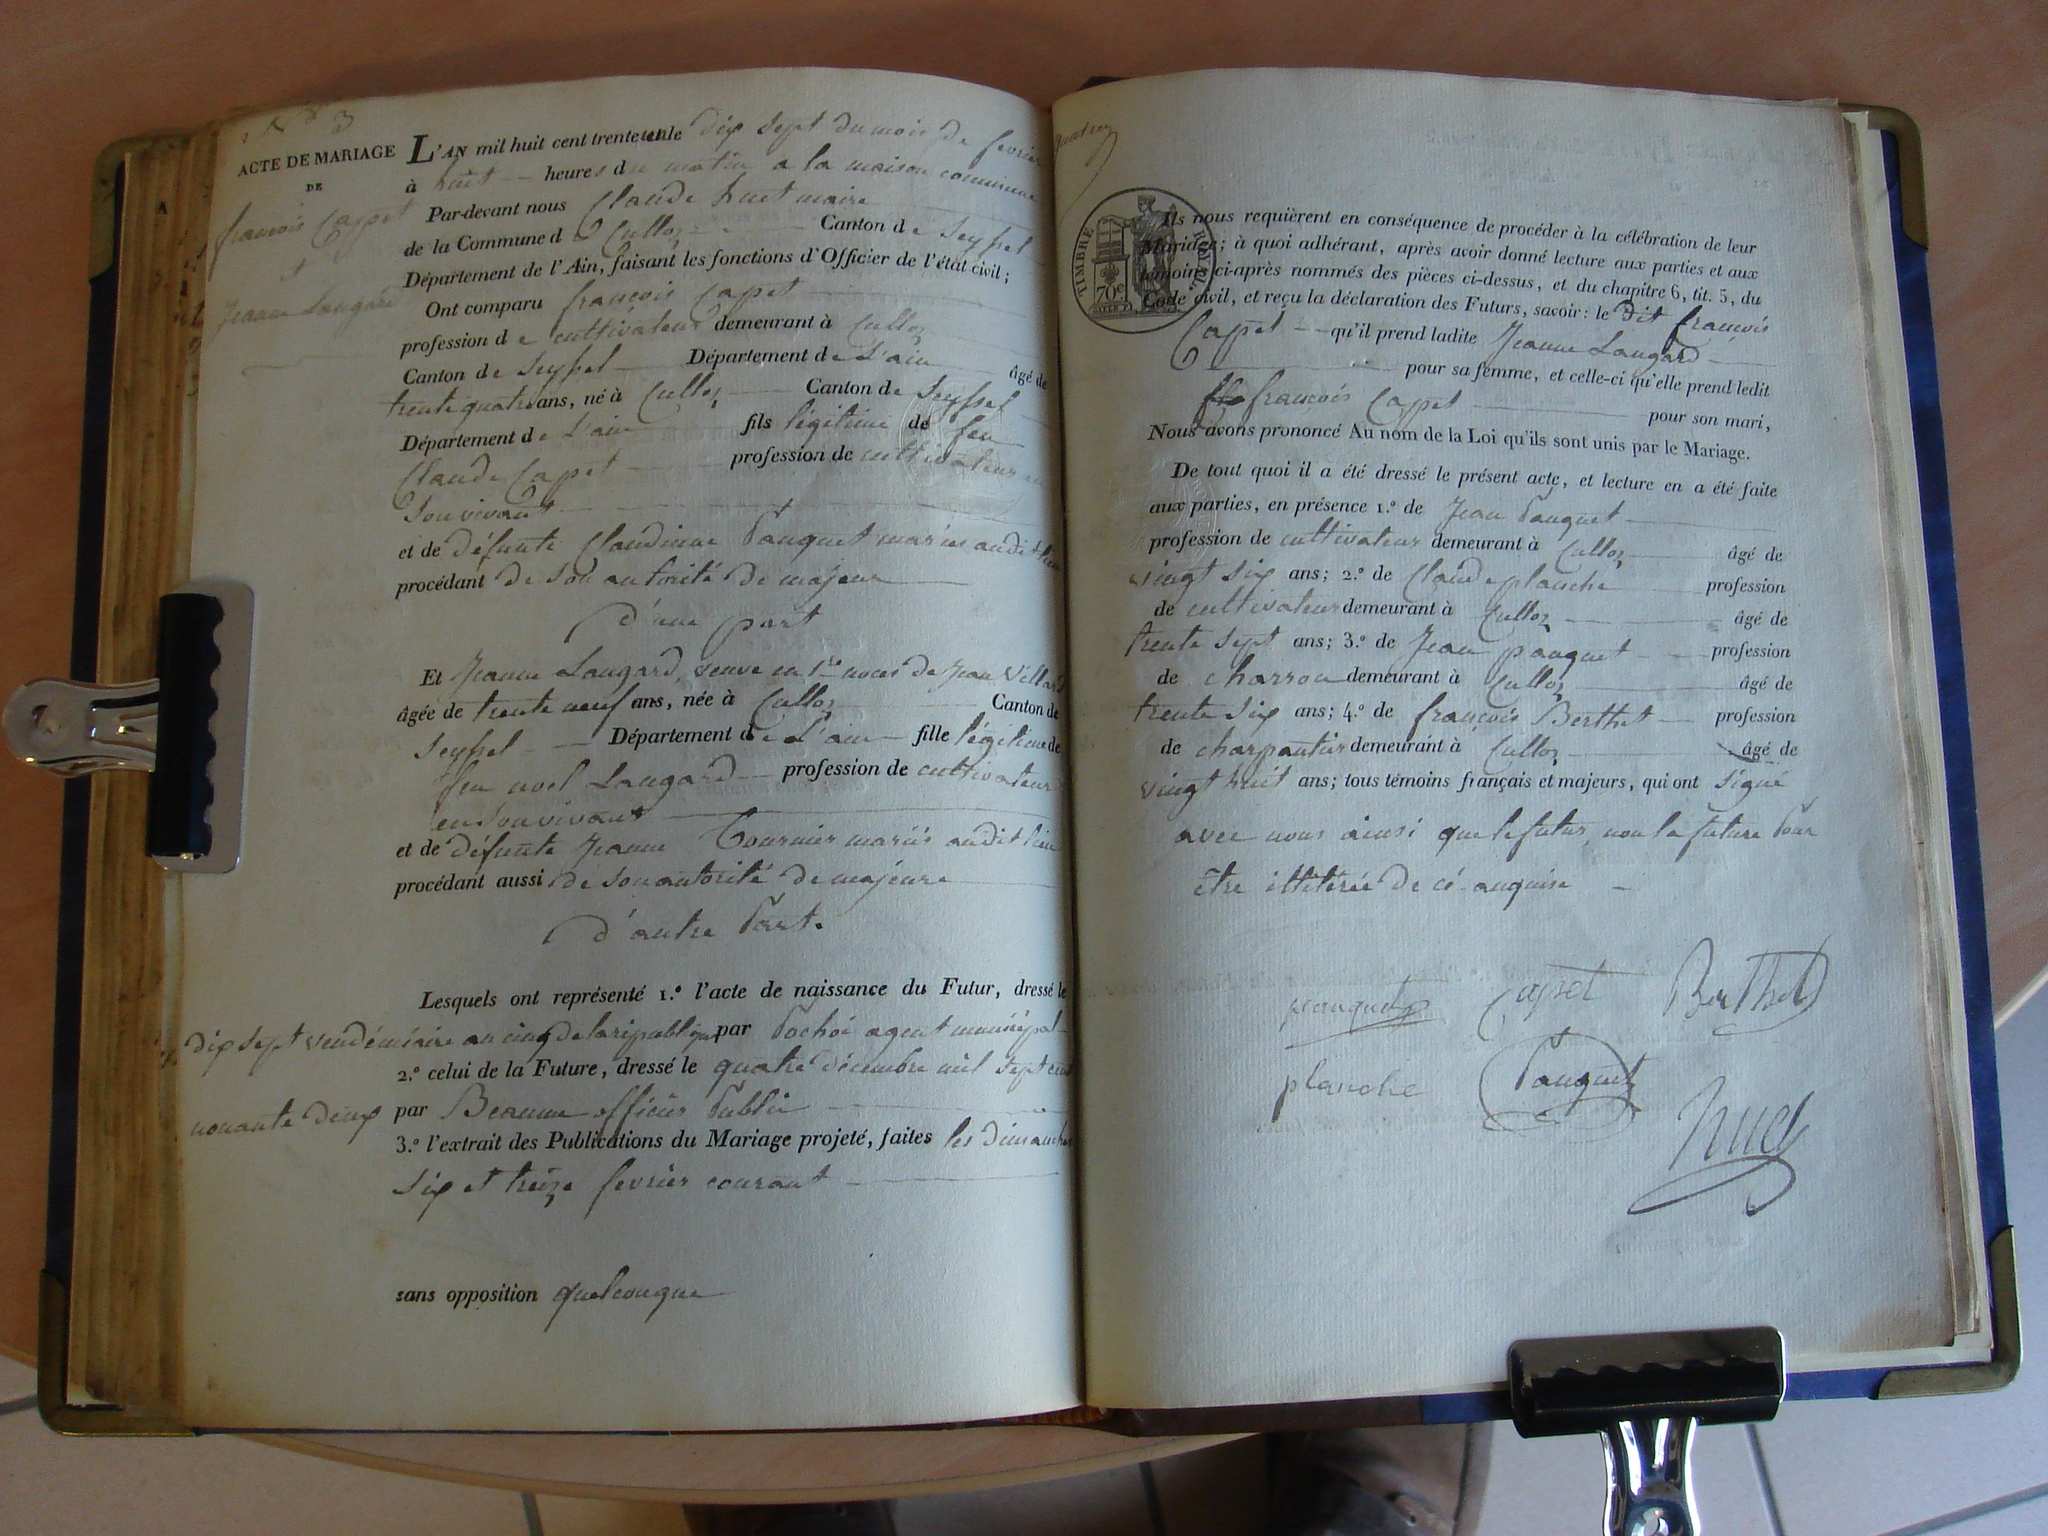 N° 3
ACTE DE MARIAGE
DE
françois Capet
et
Jeanne Laugard
L'AN mil huit cent trente et un le dix sept du mois de fevrier
à huit heures du matin a la maison commune
Par-devant nous Claude huet maire
de la Commune d Culloz Canton de Seyssel
Département de l'Ain, faisant les fonctions d'Officier de l'état civil;
Ont comparu françois Capet
profession de cultivateur demeurant à Culloz
Canton de Seyssel Département de L'ain âgé de
trente quatre ans, né à Culloz Canton de Seyssel
Département de L'ain fils légitime de feu
Claude Capet profession de cultivateur en
son vivant
et de défunte Claudinne Pauquet mariés audit lieu
procédant de son autorité de majeur
d'une part
Et Jeanne Laugard, veuve en 1re noces de Jean Villard
âgée de trente neuf ans, née à Culloz Canton de
Seyssel Département de L'ain fille légitime de
feu noel Laugard profession de cultivateur
en son vivant
et de défunte Jeanne Tournier mariés audit lieu
procédant aussi de son autorité de majeure
d'autre Part.
Lesquels ont représenté 1.° l'acte de naissance du Futur, dressé le
dix sept vendémiaire an cinq de la république par Pochoi agent municipal
2.° celui de la Future, dressé le quatre décembre mil sept cent
nonante deux par Beaume officier Public
3.° l'extrait des Publications du Mariage projeté, faites les dimanches
six et treize fevrier courant
sans opposition quelconque
TIMBRE ROYAL
70c
Ils nous requièrent en conséquence de procéder à la célébration de leur
Mariage; à quoi adhérant, après avoir donné lecture aux parties et aux
témoins ci-après nommés des pièces ci-dessus, et du chapitre 6, tit. 5, du
Code civil, et reçu la déclaration des Futurs, savoir: le dit françois
Capet qu'il prend ladite Jeanne Laugard
pour sa femme, et celle-ci qu'elle prend ledit
françois Capet pour son mari,
Nous avons prononcé Au nom de la Loi qu'ils sont unis par le Mariage.
De tout quoi il a été dressé le présent acte, et lecture en a été faite
aux parties, en présence 1.° de Jean Pauquet
profession de cultivateur demeurant à Culloz âgé de
vingt six ans; 2.° de Claude planche profession
de cultivateur demeurant à Culloz âgé de
trente sept ans; 3.° de Jean pauquet profession
de charron demeurant à Culloz âgé de
trente six ans; 4.° de françois Berthet profession
de charpentier demeurant à Culloz âgé de
vingt huit ans; tous témoins français et majeurs, qui ont signé
avec nous ainsi que le futur, non la future Pour
être illitérée de ce enquise
pauquet Capet Berthet
planche Pauquet
huet